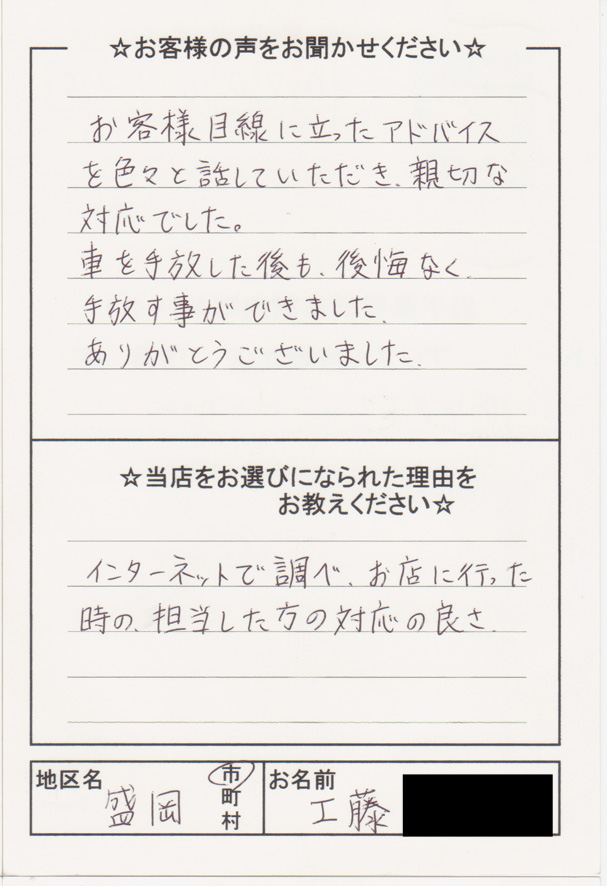 ☆お客様の声をお聞かせください☆
お客様目線に立ったアドバイス
を色々と話していただき、親切な
対応でした。
車を手放した後も、後悔なく、
手放す事ができました。
ありがとうございました。
☆当店をお選びになられた理由を
お教えください☆
インターネットで調べ、お店に行った
時の、担当した方の対応の良さ。
地区名
盛岡
市
町
村
お名前
工藤